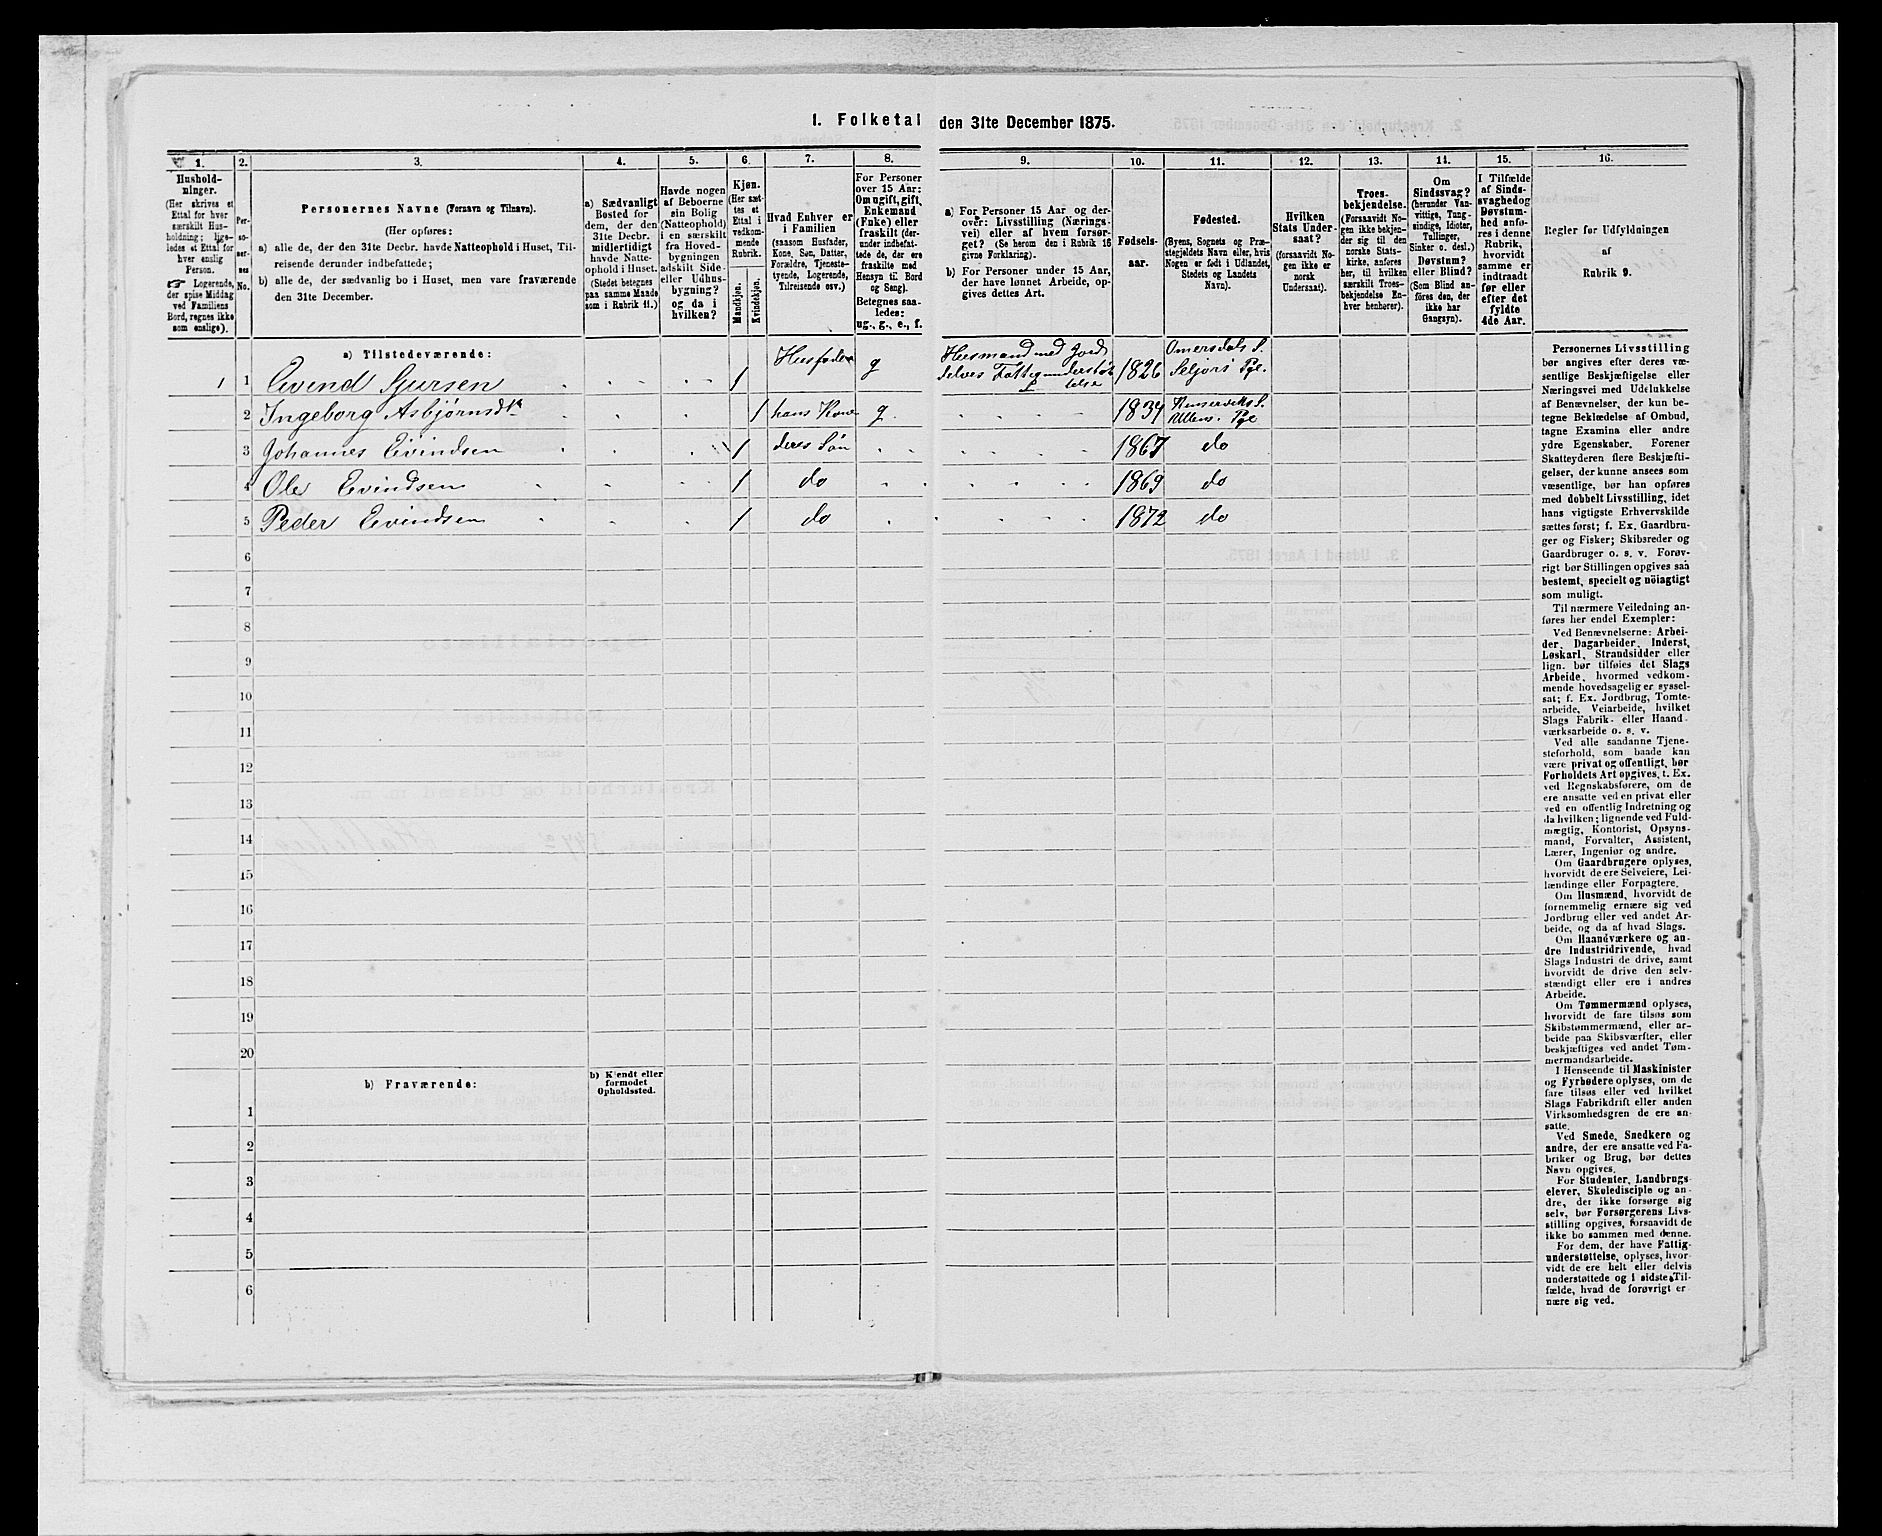 I. Folketal den 31te December 1875.
1. 2. 3. 4. 5. 6. 7. 8. 9. 10. 11. 12. 13. 14. 15. 16.
Hushold-
ninger.
(Her skrives et
Ettal for hver
særskilt Hus-
holdning; lige-
ledes et Ettal for
hver enslig
Person.
☞ Logerende,
der spise Middag
ved Familiens
Bord, regnes ikke
som enslige).
Per-
so-
ner-
nes
No.
Personernes Navne (Fornavn og Tilnavn).
(Her opføres:
a) alle de, der den 31te Decbr. havde Natteophold i Huset, Til-
reisende derunder indbefattede;
b) alle de, der sædvanlig bo i Huset, men vare fraværende
den 31te December.
a) Sædvanligt
Bosted for
dem, der den
31te Decbr.
midlertidigt
havde Natte-
ophold i Huset.
(Stedet betegnes
paa samme Maade
som i Rubrik 11.)
Havde nogen
af Beboerne
sin Bolig
(Natteophold)
i en særskilt
fra Hoved-
bygningen
adskilt Side-
eller Udhus-
bygning?
og da i
hvilken?
Kjøn.
(Her sæt-
tes et
Ettal i
vedkom-
mende
Rubrik.
Mandkjøn.
Kvindekjøn.
Hvad Enhver er
i Familien
(saasom Husfader,
Kone, Søn, Datter,
Forældre, Tjeneste-
tyende, Logerende,
Tilreisende osv.)
For Personer
over 15 Aar:
Om ugift, gift,
Enkemand
(Enke) eller
fraskilt (der-
under indbefat-
tede de, der ere
fraskilte med
Hensyn til Bord
og Seng).
Betegnes saa-
ledes:
ug., g., e., f.
a) For Personer 15 Aar og der-
over: Livsstilling (Nærings-
vei) eller af hvem forsør-
get? (Se herom den i Rubrik 16
givne Forklaring).
b) For Personer under 15 Aar,
der have lønnet Arbeide, op-
gives dettes Art.
Fødsels-
aar.
Fødested.
(Byens, Sognets og Præ-
stegjeldets Navn eller, hvis
Nogen er født i Udlandet,
Stedets og Landets
Navn).
Hvilken
Stats Under-
saat?
(forsaavidt No-
gen ikke er
norsk
Undersaat).
Troes-
bekjendelse.
(Forsaavidt No-
gen ikke bekjen-
der sig til den
norske Stats-
kirke, anføres
her, til hvilken
særskilt Troes-
bekjendelse En-
hver henhører).
Om
Sindssvag?
(herunder Van-
vittige, Tung-
sindige, Idioter,
Tullinger,
Sinker o. desl.)
Døvstum?
eller Blind?
(Som Blind an-
føres den, der
ikke har
Gangsyn).
I Tilfælde
af Sinds-
svaghed og
Døvstum-
hed anfø-
res i denne
Rubrik,
hvorvidt
samme er
indtraadt
før eller
efter det
fyldte
4de Aar.
Regler før Udfyldningen
af
Rubrik 9.
a) Tilstedeværende:
1 1 Eivind Sjursen 1 Husfader g Husmand med Jord 1826 Omersdals S.
Delves Fattigunderstøt- Seljors Pgl.
telse
2 Ingeborg Asbjørnsdtr 1 hans Kone g. 1834 Kinserviks S.
Ullens. Pgl
3 Johannes Eivindsen 1 deres Søn 1867 do
4 Ole Eivindsen 1 do 1869 do
5 Peder Eivindsen 1 do 1872 do
6
7
8
9
10
11
12
13
14
15
16
17
18
19
20
b) Fraværende:
b) Kjendt eller
formodet
Opholdssted.
1
2
3
4
5
6
Personernes Livsstilling
bør angives efter deres væ-
sentlige Beskjæftigelse eller
Næringsvei med Udelukkelse
af Benævnelser, der kun be-
tegne Beklædelse af Ombud,
tagne Examina eller andre
ydre Egenskaber. Forener
Skatteyderen flere Beskjæfti-
gelser, der kunne ansees som
væsentlige, bør han opføres
med dobbelt Livsstilling, idet
hans vigtigste Erhvervskilde
sættes først; f. Ex. Gaardbru-
ger og Fisker; Skibsreder og
Gaardbruger o. s. v. Forøv-
rigt bør Stillingen opgives saa
bestemt, specielt og nöiagtigt
som muligt.
Til nærmere Veiledning an-
føres her endel Exempler:
Ved Benævnelserne: Arbei-
der, Dagarbeider, Inderst,
Løskarl, Strandsidder eller
lign. bør tilføies det Slags
Arbeide, hvormed vedkom-
mende hovedsagelig er syssel-
sat; f. Ex. Jordbrug, Tomte-
arbeide, Veiarbeide, hvilket
Slags Fabrik- eller Haand-
værksarbeide o. s. v.
Ved alle saadanne Tjene-
steforhold, som baade kan
være privat og offentligt, bør
Forholdets Art opgives, t. Ex.
ved Regnskabsførere, om de
ere ansatte ved en privat eller
ved en offentlig Indretning og
da hvilken; lignende ved Fuld-
mægtig, Kontorist, Opsyns-
mand, Forvalter, Assistent,
Lærer, Ingeniør og andre.
Om Gaardbrugere oplyses,
hvorvidt de ere Selveiere, Lei-
lændinge eller Forpagtere.
Om Husmænd, hvorvidt de
fornemmelig ernære sig ved
Jordbrug eller ved andet Ar-
beide, og da af hvad Slags.
Om Haandværkere og an-
dre Industridrivende, hvad
Slags Industri de drive, samt
hvorvidt de drive den selv-
stændigt eller ere i andres
Arbeide.
Om Tømmermænd oplyses,
hvorvidt de fare tilsøs som
Skibstømmermænd, eller ar-
beide paa Skibsværfter, eller
beskjæftiges ved andet Tøm-
mermandsarbeide.
I Henseende til Maskinister
og Fyrbødere oplyses, om de
fare tilsøs eller ved hvilket
Slags Fabrikdrift eller anden
Virksomhedsgren de ere an-
satte.
Ved Smede, Snedkere og
andre, der ere ansatte ved Fa-
briker og Brug, bør dettes
Navn opgives.
For Studenter, Landbrugs-
elever, Skoledisciple og an-
dre, der ikke forsørge sig
selv, bør Forsørgerens Livs-
stilling opgives, forsaavidt de
ikke bo sammen med denne.
For dem, der have Fattig-
understøttelse, oplyses, hvor-
vidt de ere helt eller delvis
understøttede og i sidste Til-
fælde, hvad de forøvrigt er-
nære sig ved.